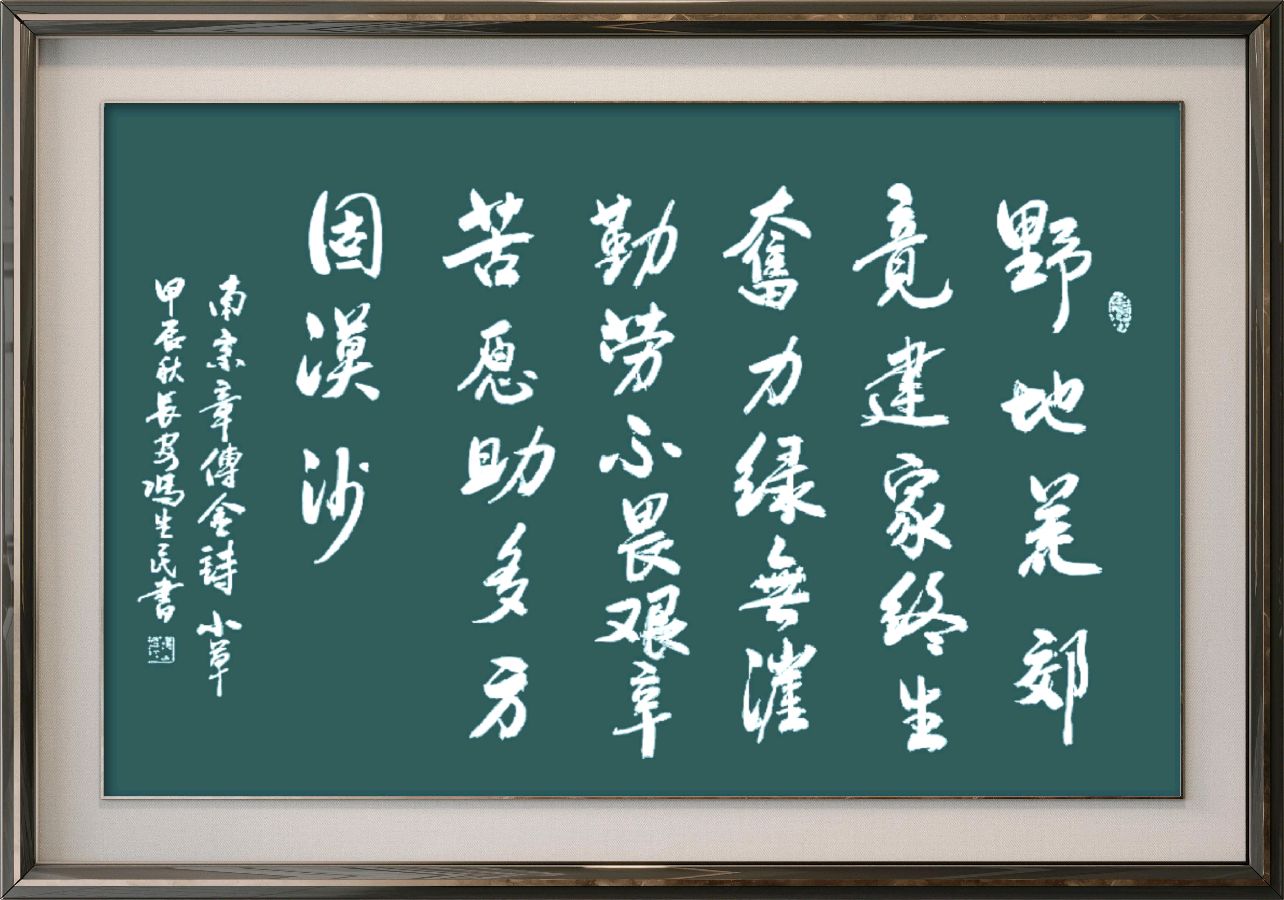 野地荒郊
竟建家终生
奮力绿無涯
勤劳不畏艰辛
苦愿助多方
固漠沙
南宗章傳金詩小草
甲辰秋长安冯生民書